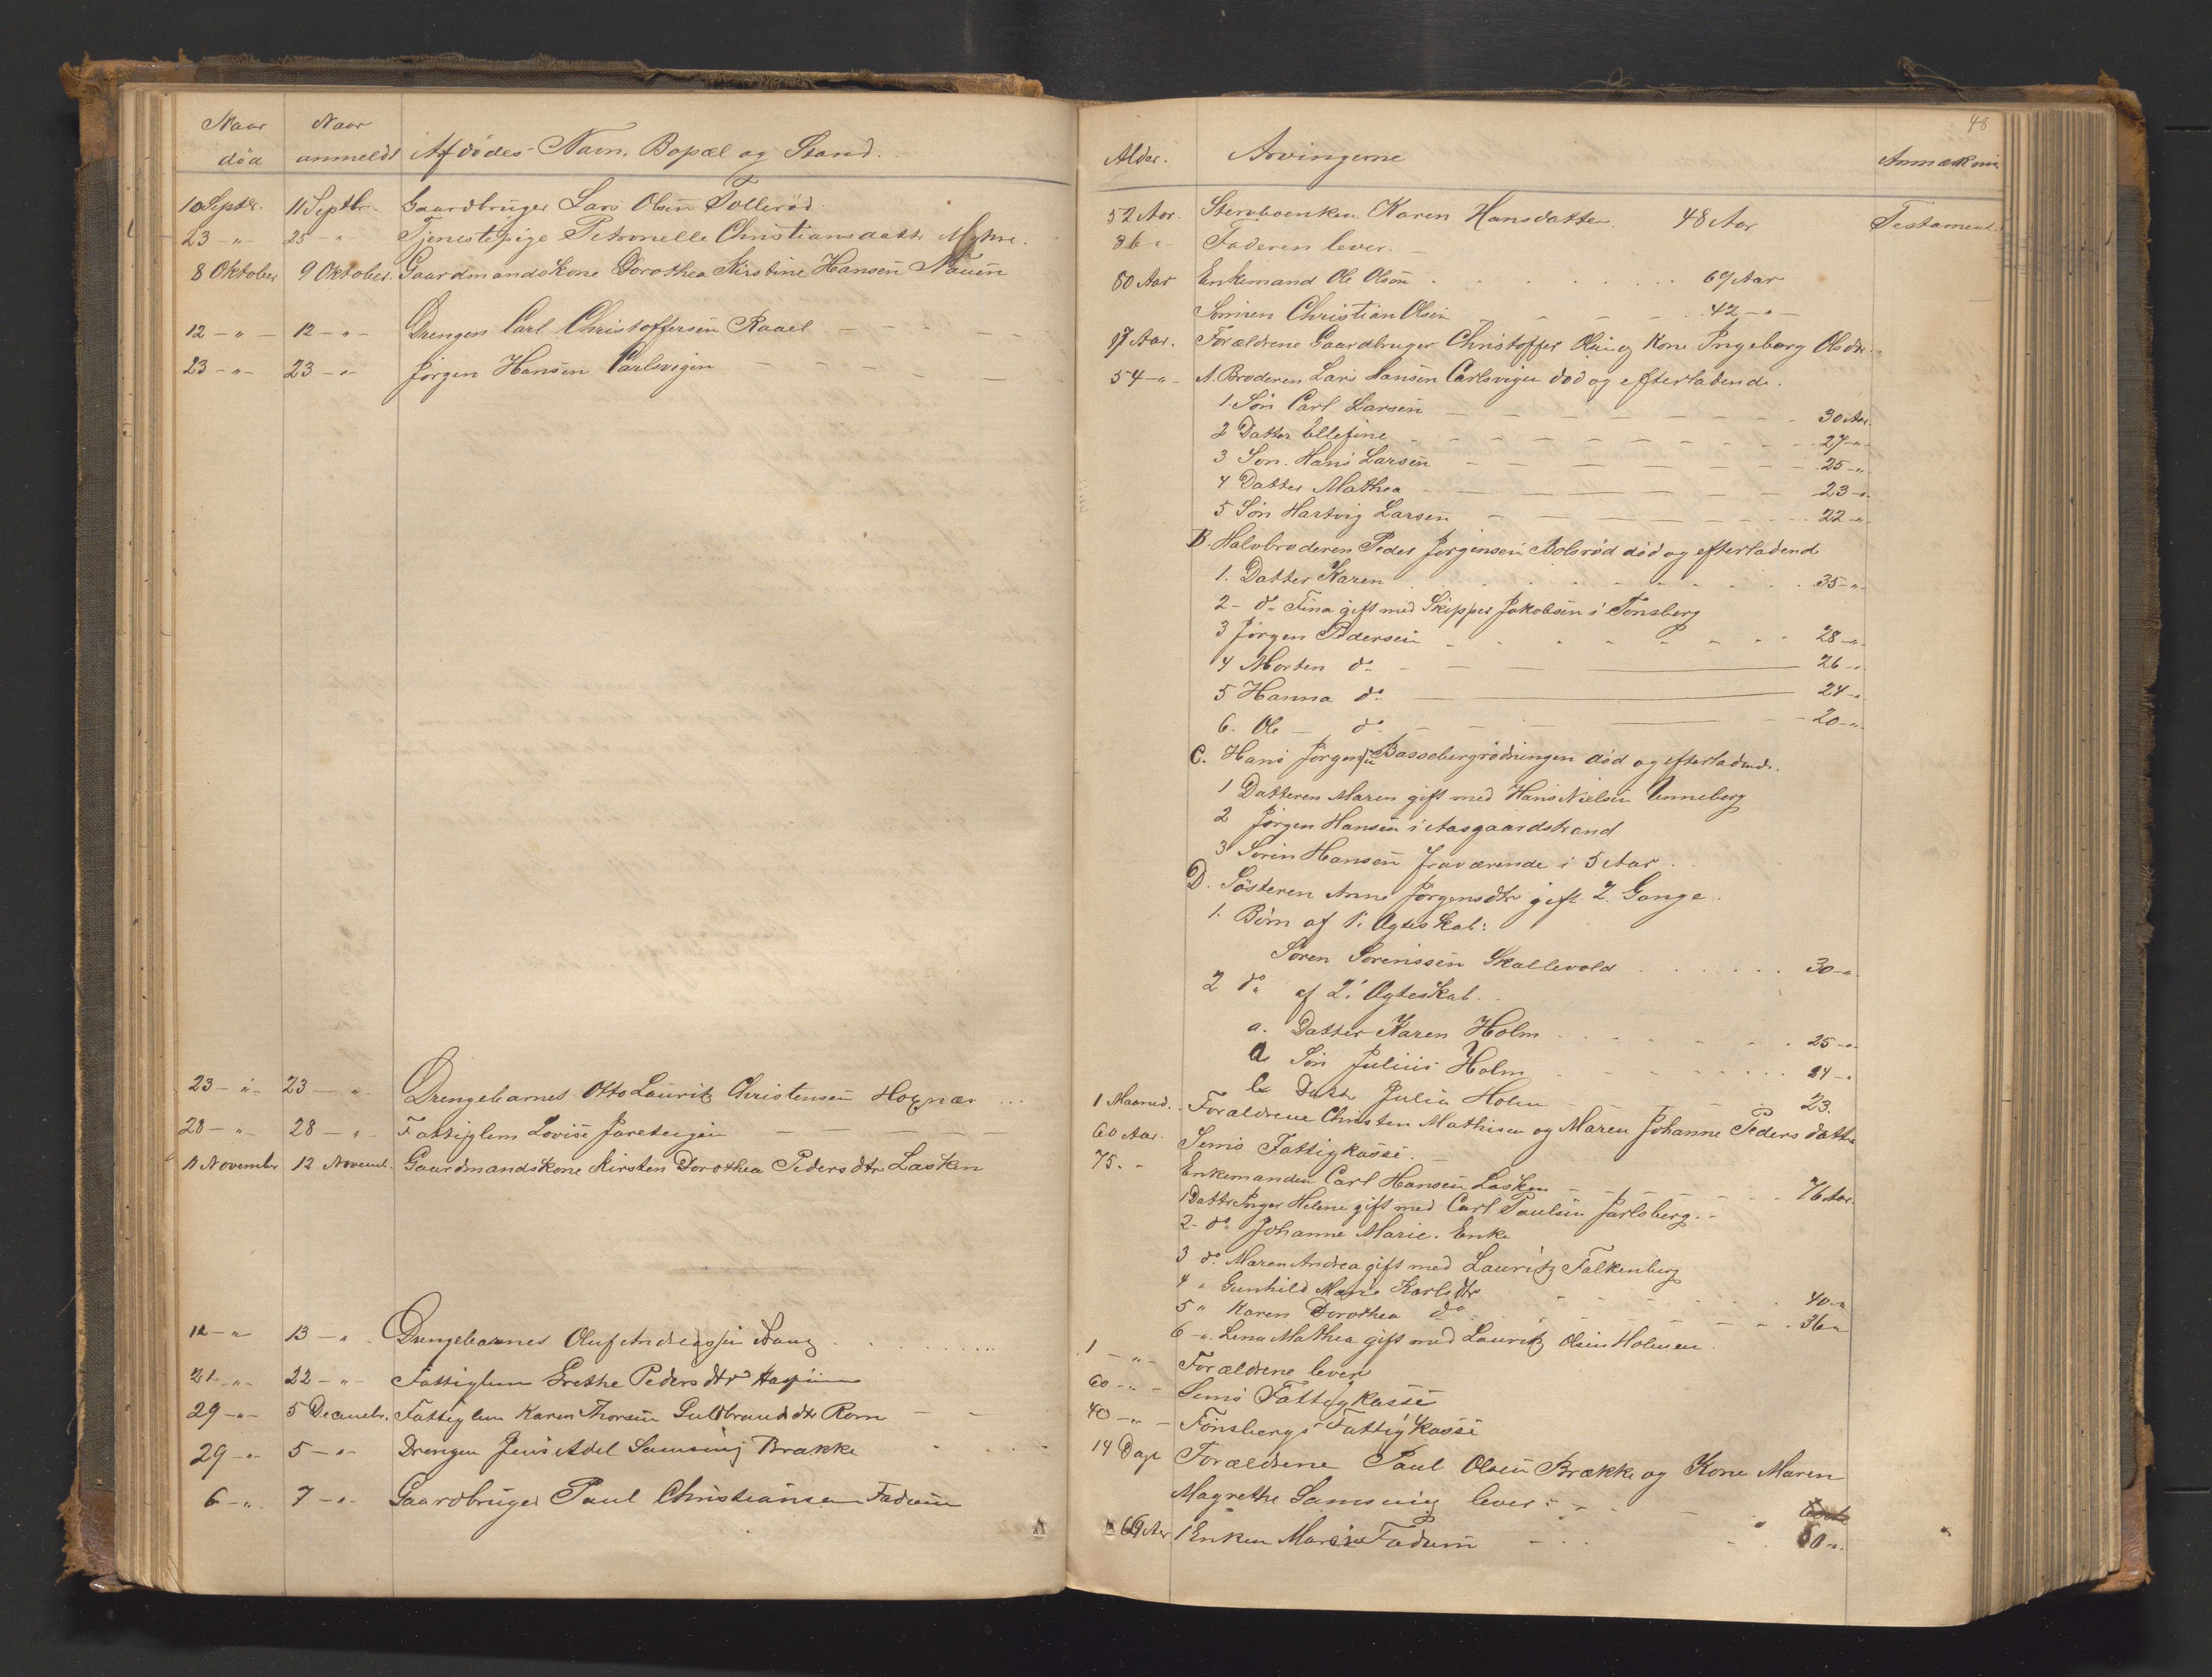 Naar Naar
död anmeldt Afdödes Navn, Bopæl og Stand.
10 Septbr. 11 Septbr. Gaardbruger Lars Olsen Tollerød
23 - " - 25 - " Tjenestepige Petronelle Christiansdatter Myhre.
8 Oktober 9 Oktober. Gaardmandskone Dorothea Kirstine Hansen Nauen
12 - " - 12 - " - Drengen Carl Christoffersen Raael
23 - " - 23 - " - Jörgen Hansen Carlsvigen
23 - " - 23 - " - Drengebarnet Otto Lauritz Christensen Hognæs
28 - " - 28 - " - Fattiglem Lovise Jareteigen
11 November 12 Novemb. Gaardmandskone Kirsten Dorothea Pedersdtr Lasken
12 - " 13 - " - Drengebarnet Oluf Andreassen
21 - " - 22 - " - Fattiglem Grethe Pedersdtr
29 - " - 5 Decembr. Fattiglem Karen Thorsen Guldbrandsdtr Rom
29 - " - 5 - " - Drengen Jens Adel Samsing Brække
6 - " - 7 - " - Gaardbruger Paul Christiansen Fadum
48
Alder. Arvingerne Anmærkning
52 Aar. Stervboenken Karen Hansdatter. 48 Aar Testament.
36 " Faderen lever.
80 Aar Enkemand Ole Olsen 69 Aar
Sönnen Christian Olsen 42 - " -
17 Aar. Forældrene Gaardbruger Christoffer Olsen og Kone Ingeborg Olsdtr.
54 - " - A. Broderen Lars Hansen Carlsvigen död og efterladende.
1. Sön Carl Larsen 30 Aar.
2 Datter Ellefine 27 - " -
3 Son. Hans Larsen 25 - "
4 Datter Mathea 23 - "
5 Sön Hartvig Larsen 22 - "
B. Halvbroderen Peder Jörgensen Bolsrød död og efterladend
1. Datter Karen 35 - "
2 - do Tina gift med Skipper Jakobsen i Tonsberg
3 Jörgen Pedersen 28 - "
4 Morten do 26 - "
5 Hanna do 24 - "
6. Ole - do 20 - "
C. Hans Jörgensen Bassebergrödningen död og efterladende.
1 Datteren Maren gift med Hans Nielsen Unneberg
2 Jörgen Hansen i Aasgaardstrand
3 Sören Hansen fraværende i 5 Aar.
D. Sösteren Anne Jörgensdtr gift 2 Gange.
1. Börn af 1. Ægteskab:
Sören Sörenssen Skallevold 30 - "
2 do af 2. Ægteskab.
a. Datter Karen Holm 25 - "
Sön Julius Holm 24 - "
Dattr Julia Holm 23.
1 Maaned. Forældrene Christen Mathisen og Maren Johanne Pedersdatter
60 Aar. Sems Fattigkasse.
75. - Enkemanden Carl Hansen Lasken 76 Aar.
1 Dattr Inger Helene gift med Carl Paulsen Jarlsberg.
2 - do Johanne Marie. Enke
3 do Maren Andrea gift med Lauritz Falkenberg
4 " Gunhild Marie Karlsdtr 40 "
5 " Karen Dorothea do 36 "
6 - " Lena Mathea gift med Lauritz Olsen Holmen.
1 - " - Forældrene lever
60 - " - Sems Fattigkasse
40 - " - Tönsbergs Fattigkasse
14 Dage Forældrene Paul Olsen Brække og Kone Maren
Magrethe Samsing lever.
69 Aar 1 Enken Maren Fadum 60 - "